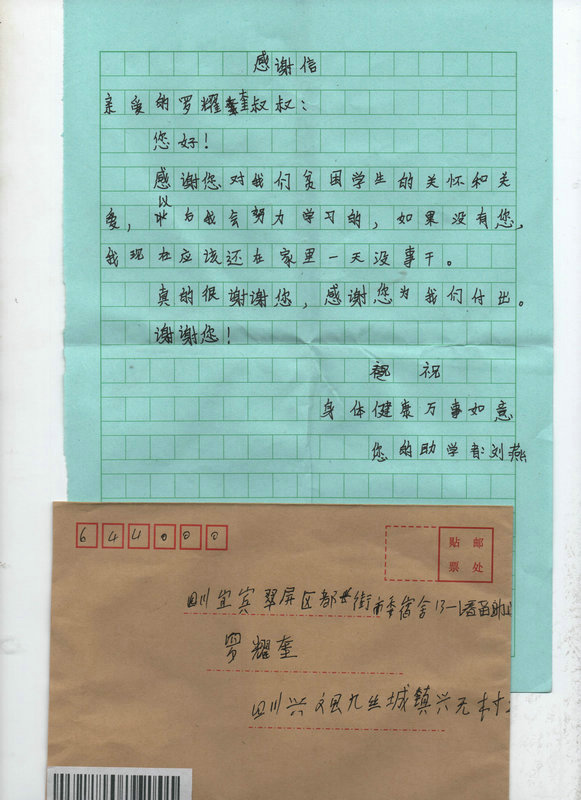 感谢信
亲爱的罗耀奎叔叔：
您好！
感谢您对我们贫困学生的关怀和关
爱，以后我会努力学习的，如果没有您，
我现在应该还在家里一天没事干。
真的很谢谢您，感谢您为我们付出。
谢谢您！
祝
身体健康万事如意
您的助学者：刘燕
644000
贴 邮
票 处
四川宜宾翠屏区都世街市委宿舍13-1
罗耀奎
四川兴文县九丝城镇兴无村